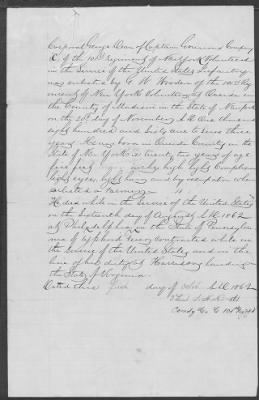 Corporal George Dean of Captain Company
of the 101st Regiment of New York Volunteers
in the Service of the United States Infantry
was enlisted by G. W. of the 101st Reg
iment of New York Volunteers at Oneida in
the County of Madison in the State of New York
on the 26th day of November A D One thousand
eight hundred and Sixty one to serve three
years. He was born in Oneida County in the
State of New York is twenty two years of age
five feet inches high light Complexion
light eyes, light hair and by occupation when
enlisted a Farmer
He died while in the Service of the United States
on the Sixteenth day of August A D 1862
at Philadelphia in the State of Pennsylva
nia of Typhoid Fever contracted while in
the Service of the United States and in the
line of his duty at Harrisons Landing
the State of Virginia
Dated this day of A D 1862
Comdg Co 101 Regt